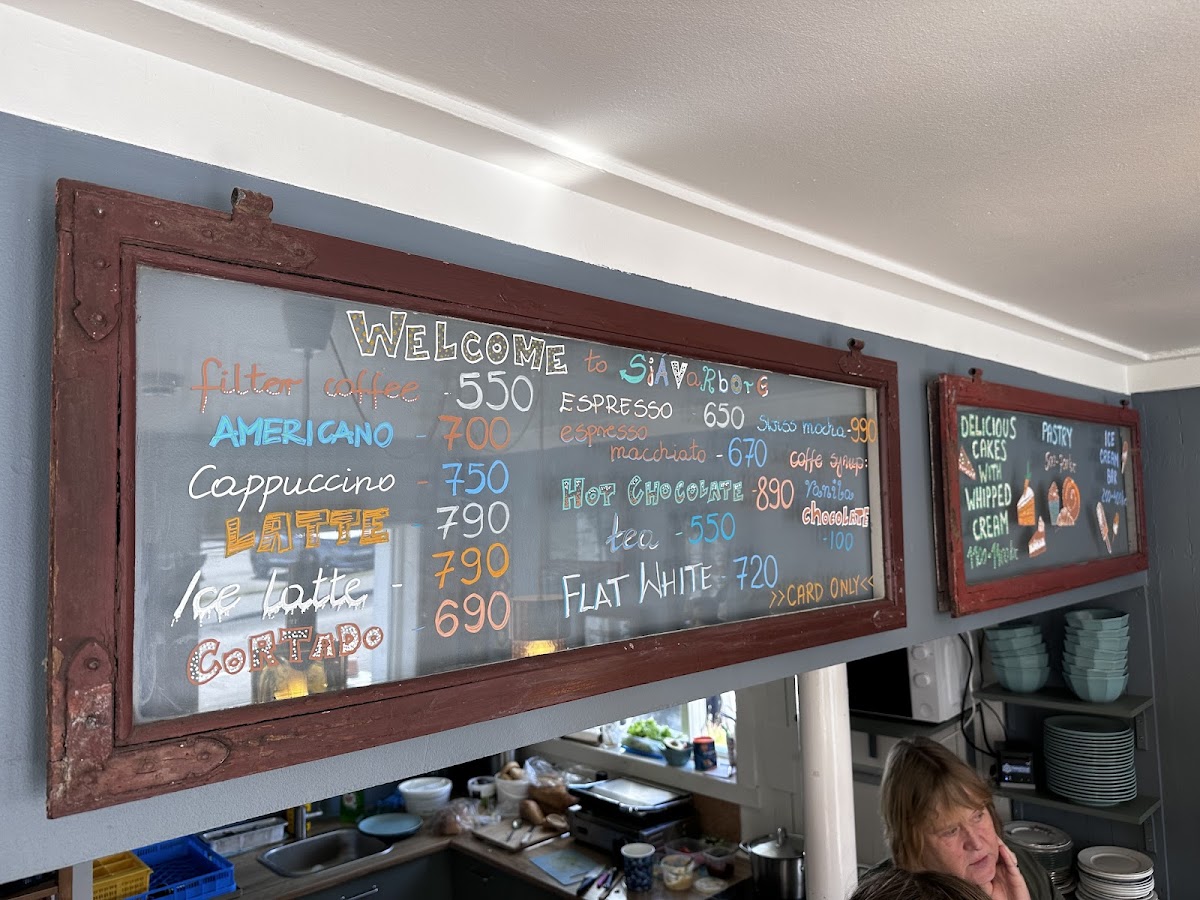 WELCOME to SjÁVaRborg
filter coffee - 550
AMERICANO - 700
Cappuccino - 750
LATTE 790
Ice latte - 790
CORTADO 690
ESPRESSO - 650
espresso
macchiato - 670
HOT CHOCOLATE - 890
tea - 550
FLAT WHITE - 720
Swiss mocha - 990
coffe syrup:
vanilla
chocolate
- 100
>>CARD ONLY<<
DELICIOUS
CAKES
WITH
WHIPPED
CREAM
PASTRY
ICE
CREAM
BAR